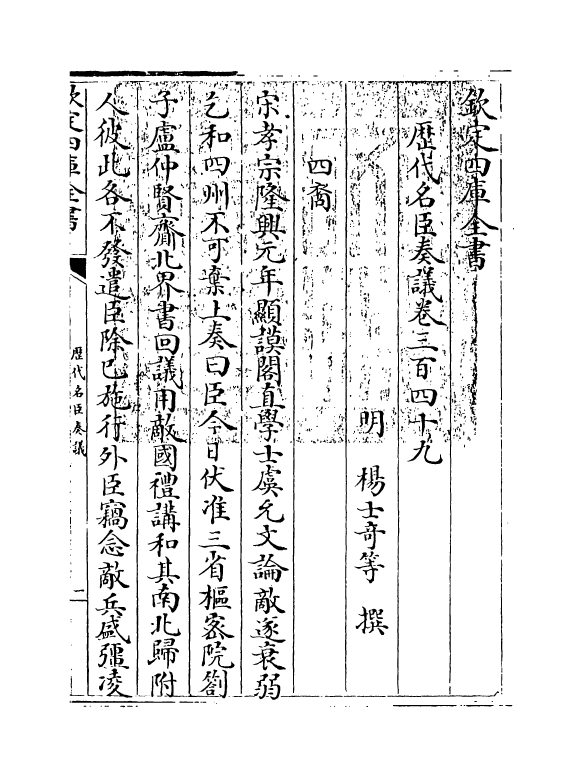 欽定四庫全書
歷代名臣奏議卷三百四十九
明 楊士竒等 撰
四裔
宋孝宗隆興元年顯謨閣直學士虞允文論敵遂衰弱
乞和四州不可棄上奏曰臣今日伏准三省樞密院劄
子盧仲賢齎北界書回議用敵國禮講和其南北歸附
人彼此各不發遣臣除已施行外臣竊念敵兵盛彊凌
欽定四庫全書
歷代名臣奏議